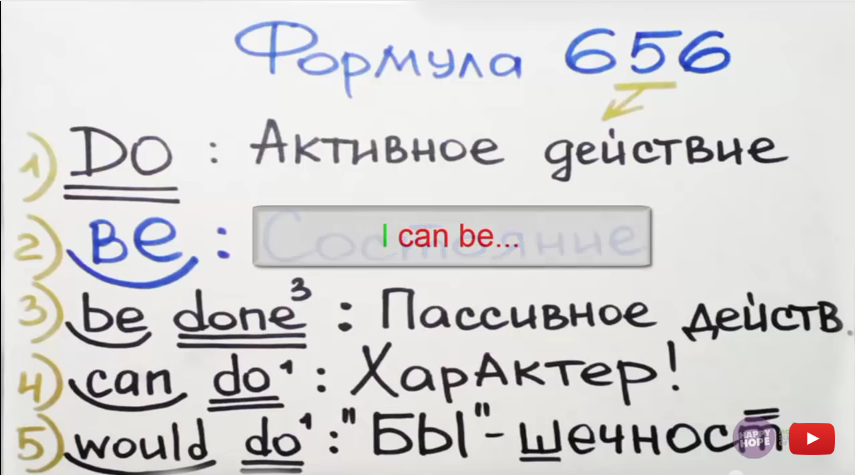 Формула 656
1) DO : Активное действие
2) Be : Состояние
I can be...
3) be done³ : Пассивное действ.
4) can do¹ : Характер!
5) would do¹ : "БЫ" - шечность
HAPPY HOPE